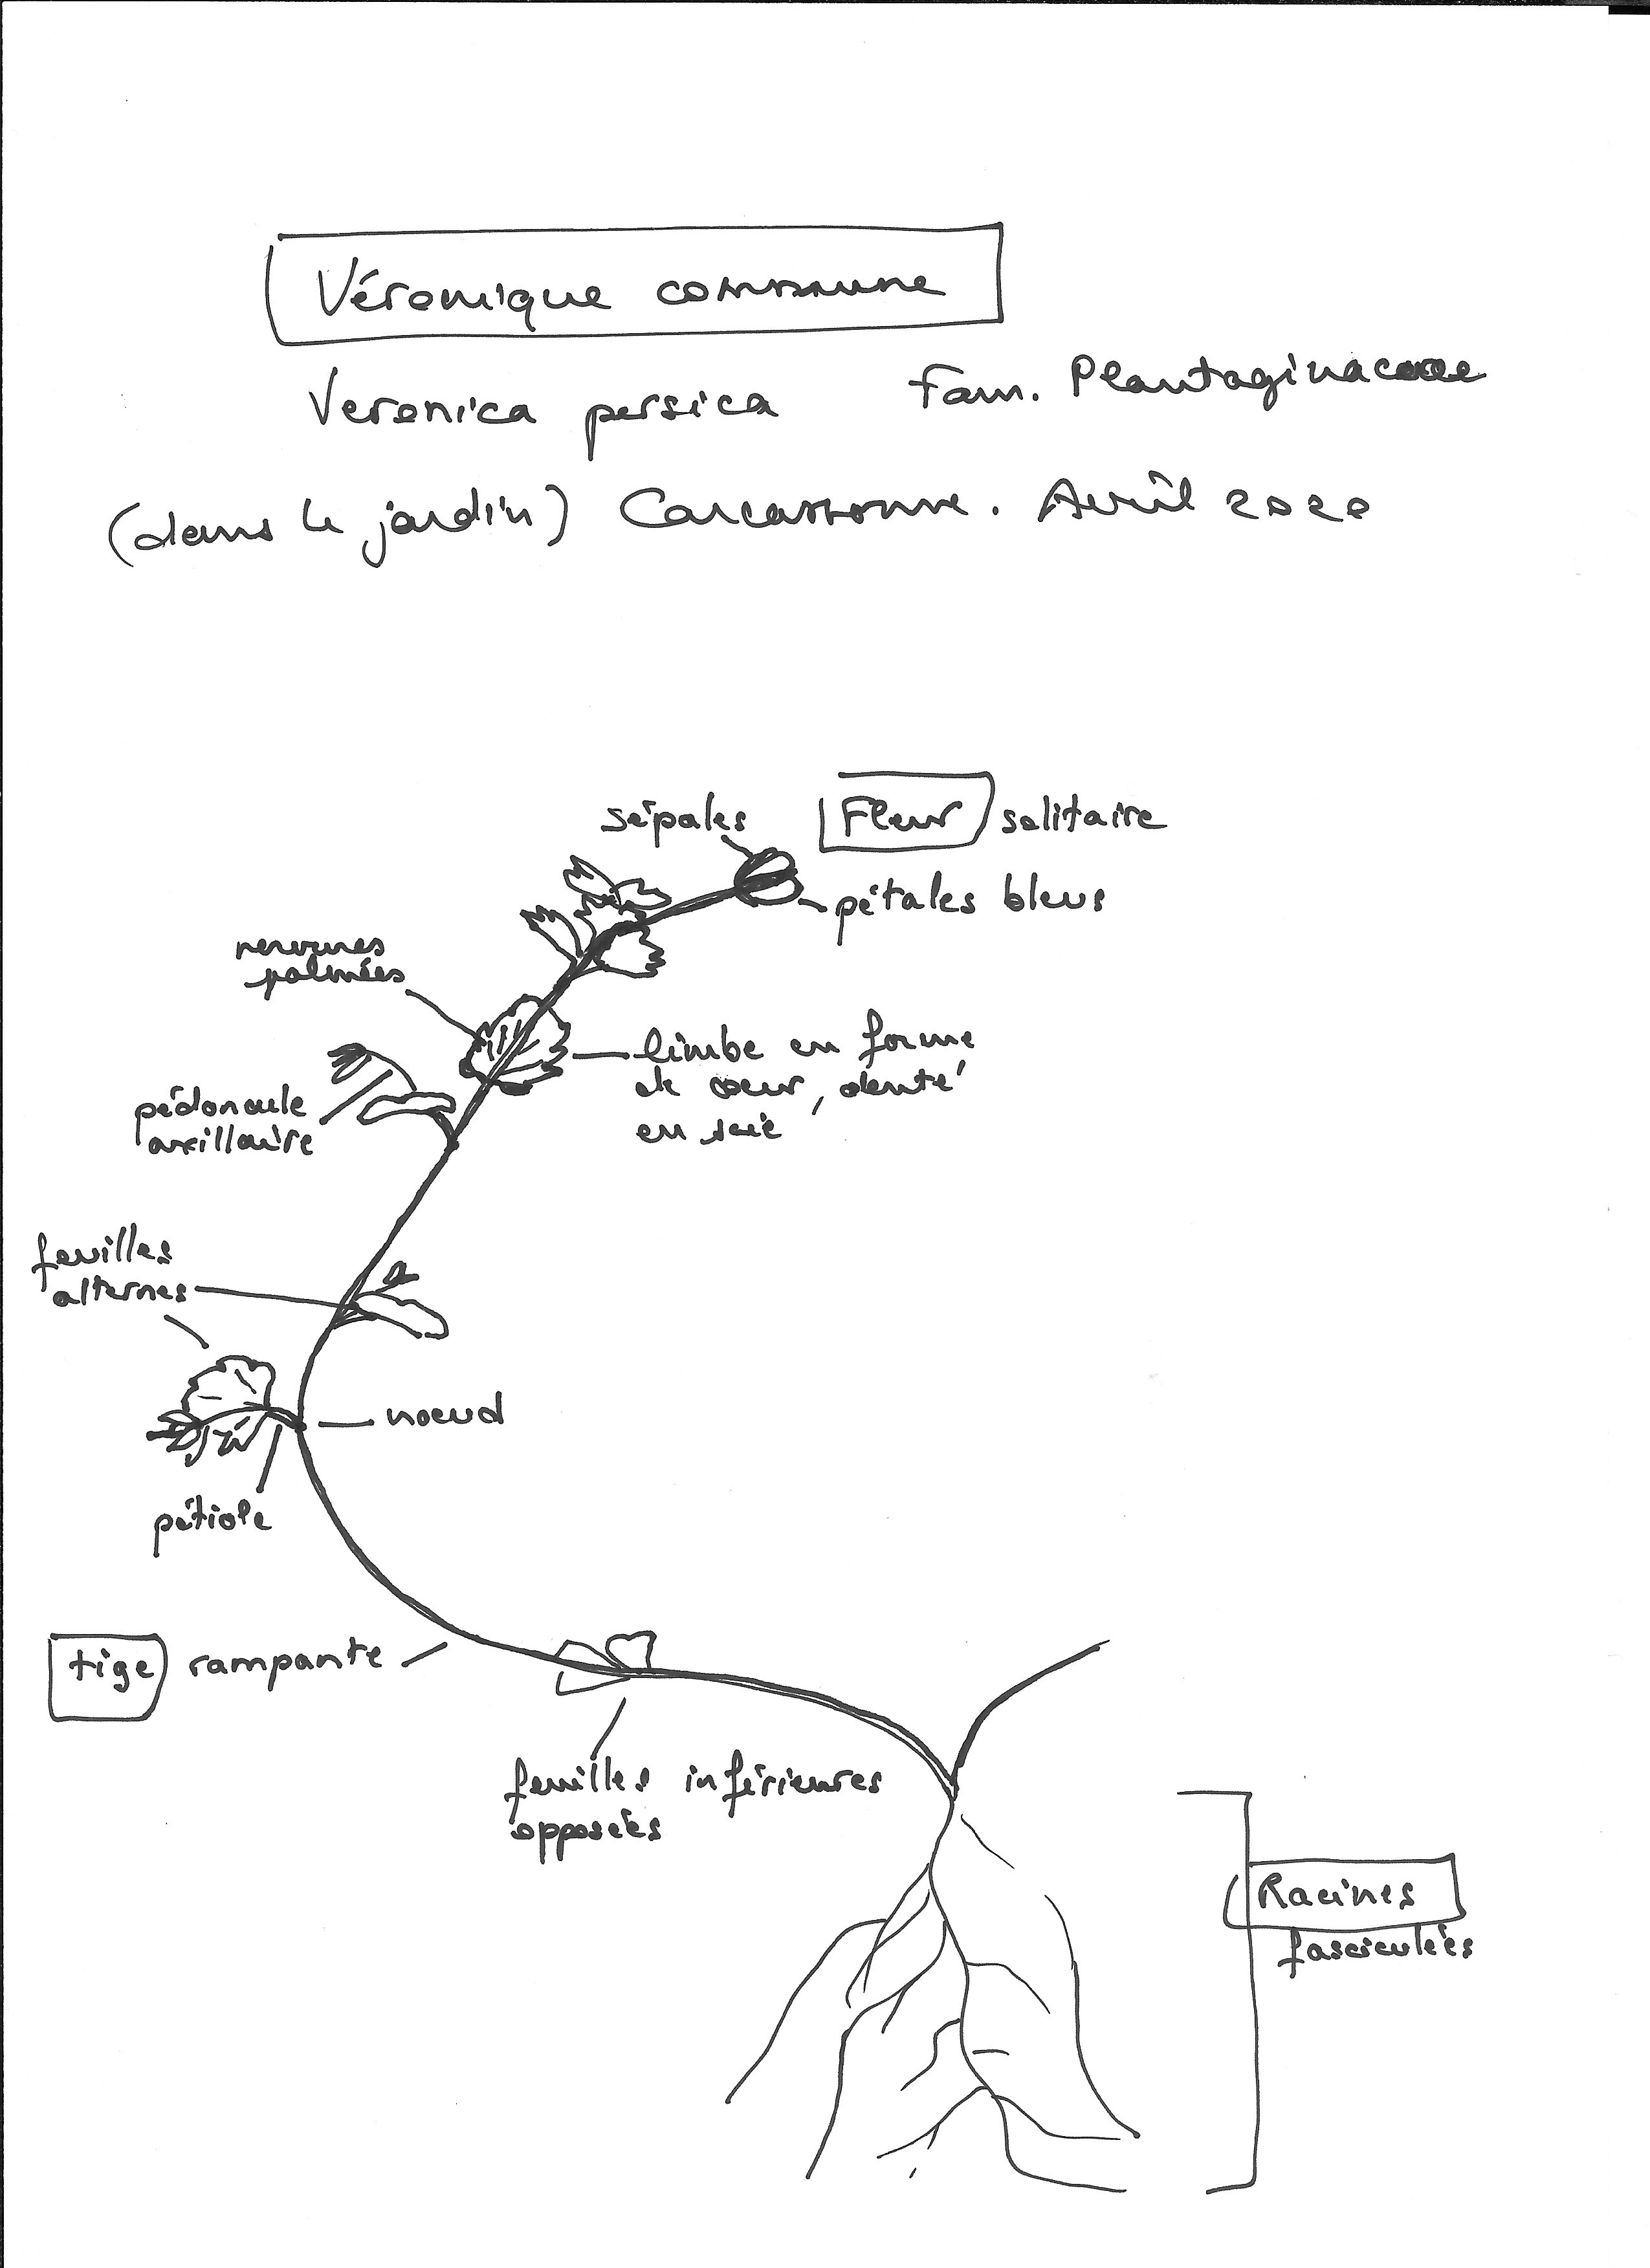 Véronique commune
Veronica persica Fam. Plantaginaceae
(dans le jardin) Carcassonne. Avril 2020
sépales Fleur solitaire
pétales bleus
nervures
palmées
limbe en forme
de coeur, denté
en scie
pédoncule
axillaire
feuilles
alternes
noeud
pétiole
tige rampante
feuilles inférieures
opposées
Racines
fasciculées